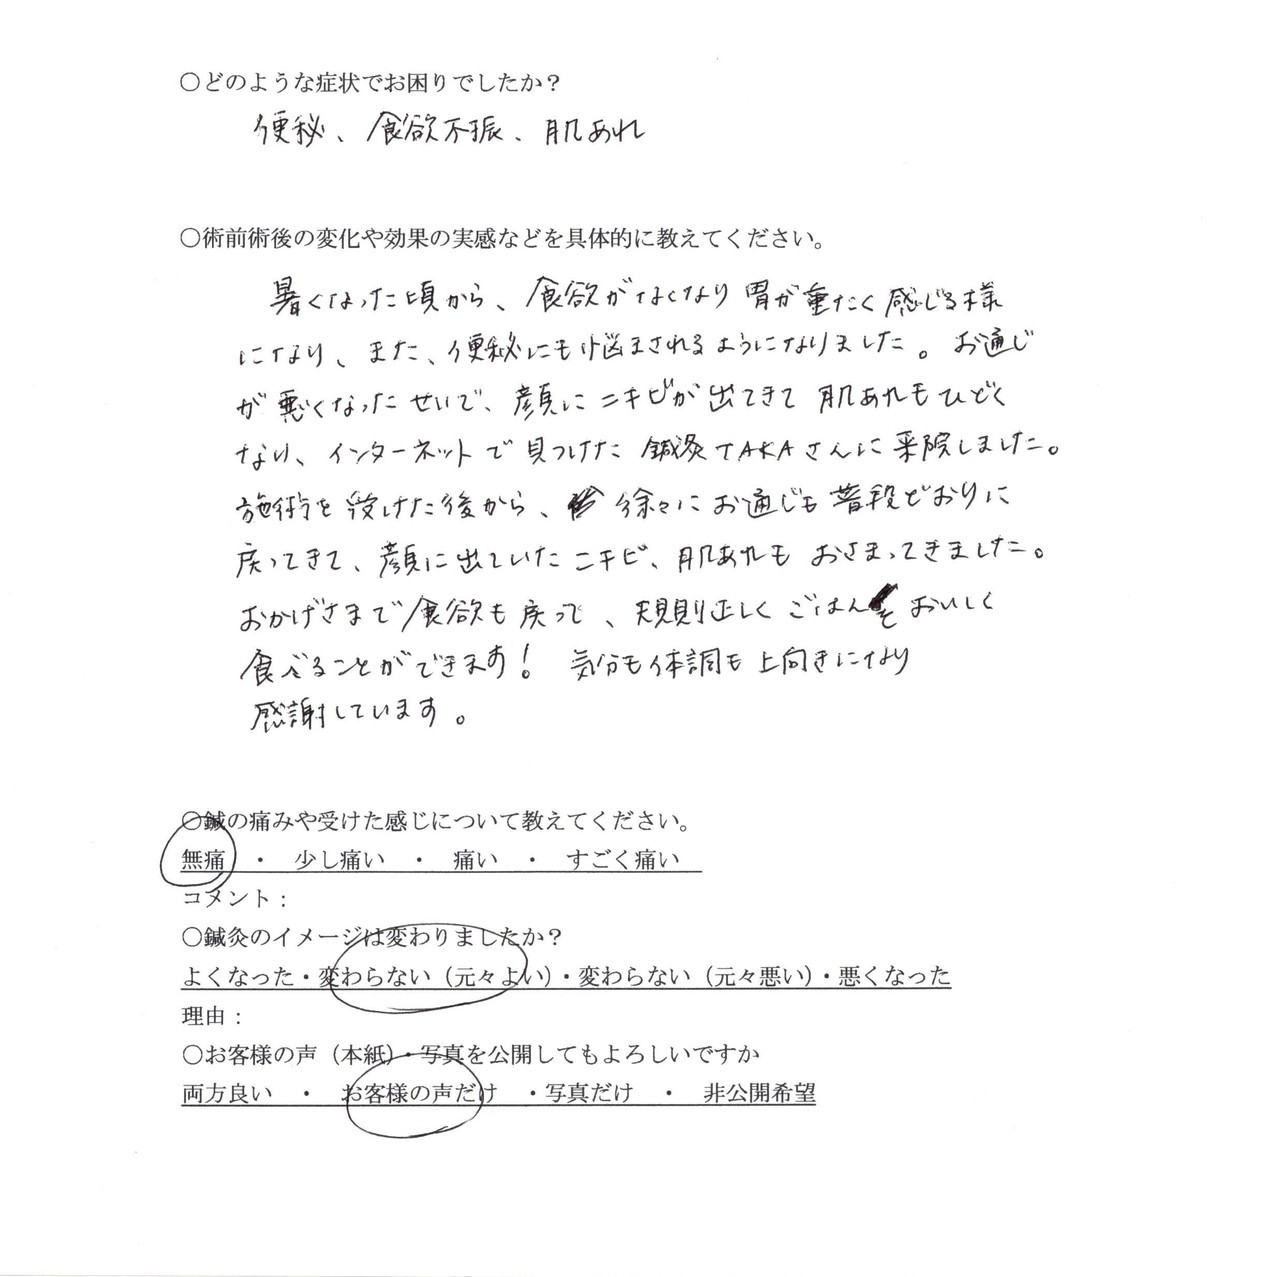 ○どのような症状でお困りでしたか？
便秘、食欲不振、肌あれ
○術前術後の変化や効果の実感などを具体的に教えてください。
暑くなった頃から、食欲がなくなり胃が重たく感じる様
になり、また、便秘にも悩まされるようになりました。お通じ
が悪くなったせいで、顔にニキビが出てきて肌あれもひどく
なり、インターネットで見つけた鍼灸TAKAさんに来院しました。
施術を受けた後から、徐々にお通じも普段どおりに
戻ってきて、顔に出ていたニキビ、肌あれもおさまってきました。
おかげさまで食欲も戻って、規則正しくごはんをおいしく
食べることができます！気分も体調も上向きになり
感謝しています。
○鍼の痛みや受けた感じについて教えてください。
無痛　・　少し痛い　・　痛い　・　すごく痛い
コメント：
○鍼灸のイメージは変わりましたか？
よくなった・変わらない（元々よい）・変わらない（元々悪い）・悪くなった
理由：
○お客様の声（本紙）・写真を公開してもよろしいですか
両方良い　・　お客様の声だけ　・写真だけ　・　非公開希望